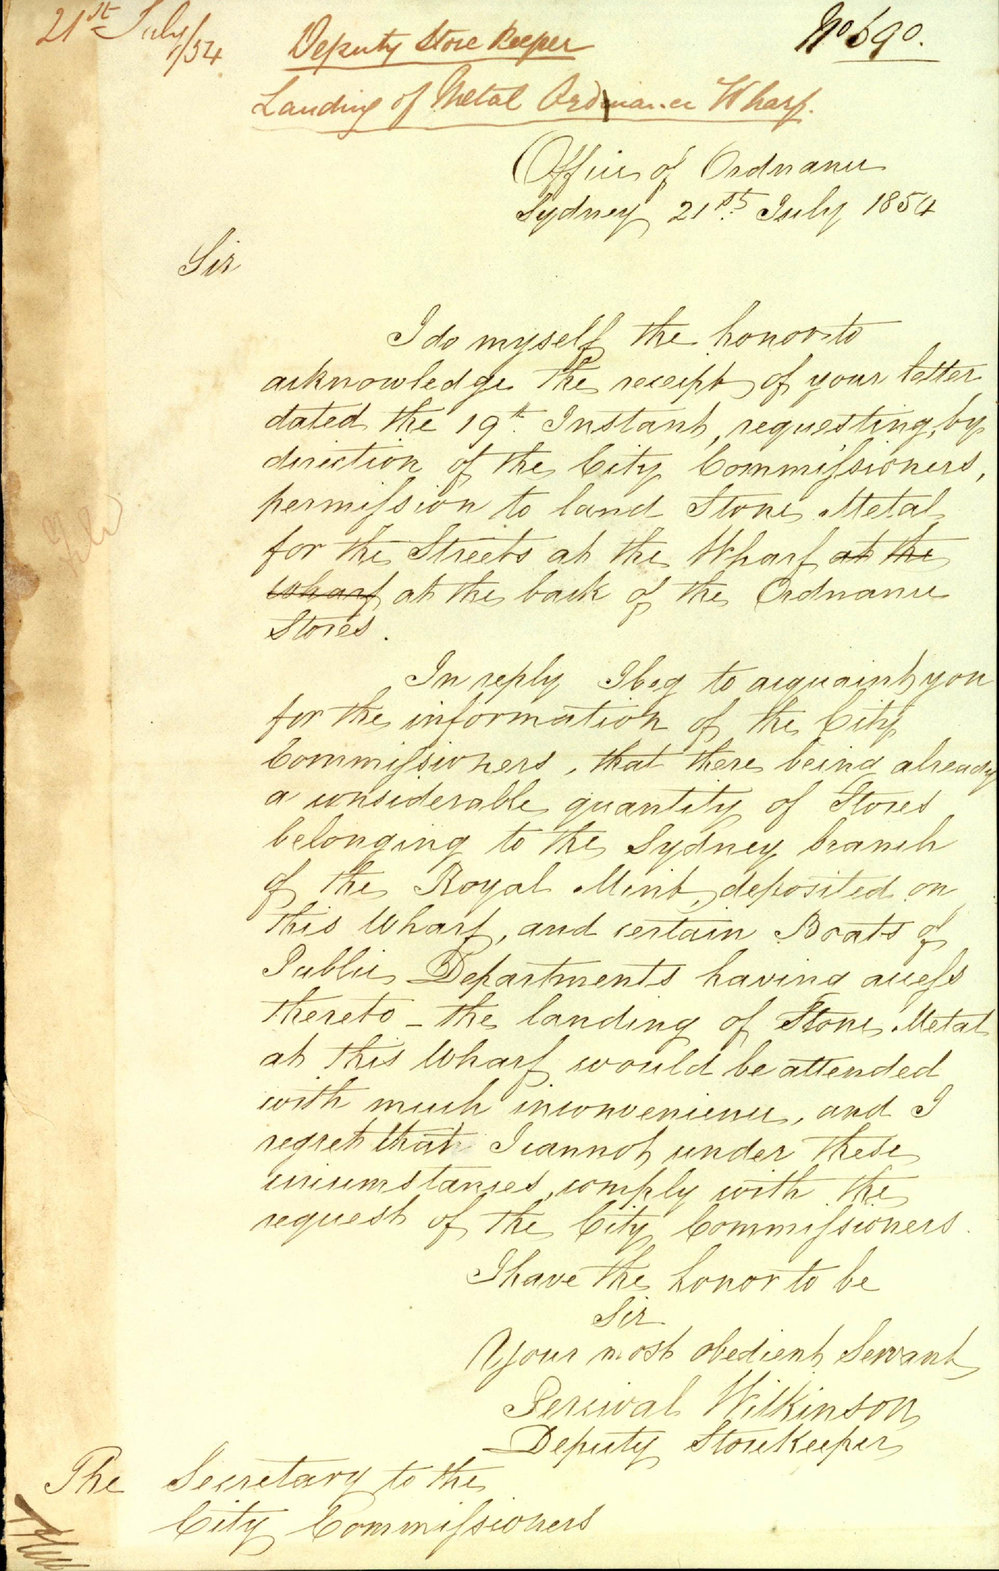 21st July /54
Deputy Store Keeper
No 590.
Landing of Metal Ordnance Wharf.
Office of Ordnance
Sydney 21st July 1854
Sir
I do myself the honor to
acknowledge the receipt of your letter
dated the 19th Instant, requesting, by
direction of the City Commissioners,
permission to land Stone Metal
for the Streets at the Wharf at the
Wharf at the back of the Ordnance
Stores.
In reply I beg to acquaint you
for the information of the City
Commissioners, that there being already
a considerable quantity of Stores
belonging to the Sydney branch
of the Royal Mint, deposited on
this Wharf, and certain Boats of
Public Departments having access
thereto - the landing of Stone Metal
at this Wharf would be attended
with much inconvenience, and I
regret that I cannot under these
circumstances, comply with the
request of the City Commissioners.
I have the honor to be
Sir
Your most obedient Servant
Percival Wilkinson
Deputy Storekeeper
The Secretary to the
City Commissioners